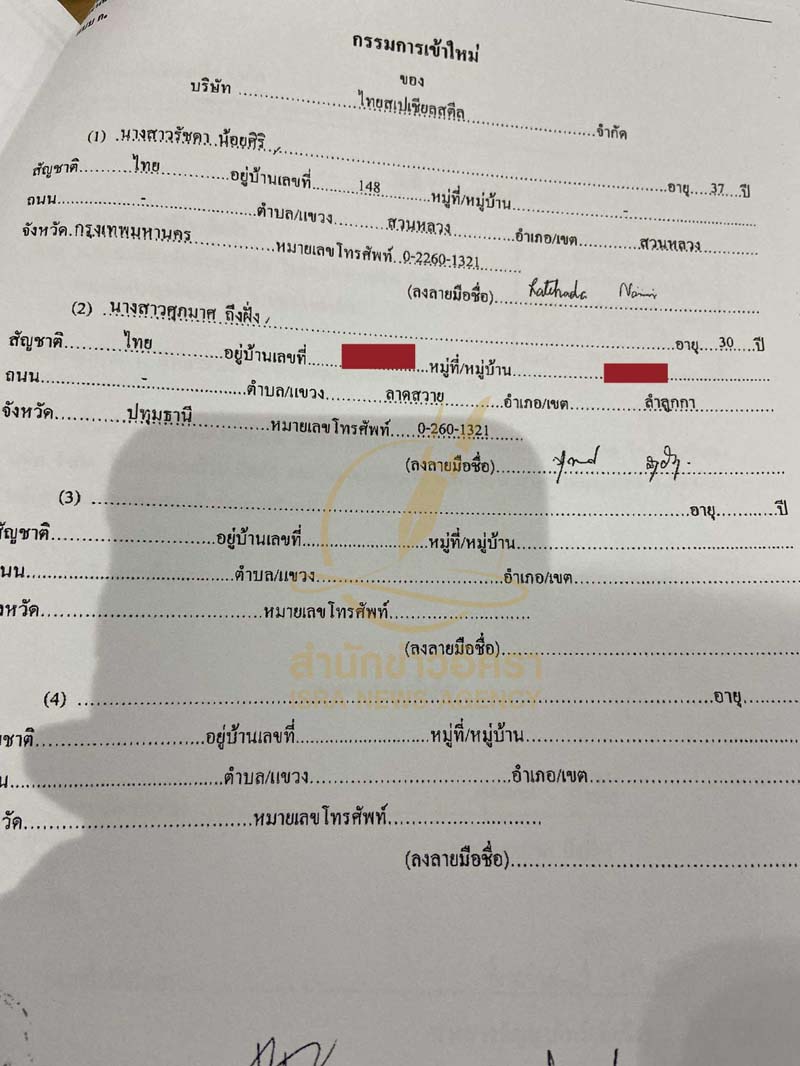 แบบ ก.
กรรมการเข้าใหม่
ของ
บริษัท ไทยสเปเชียลสตีล จำกัด
(1) นางสาวรัชดา น้อยศิริ อายุ 37 ปี
สัญชาติ ไทย อยู่บ้านเลขที่ 148 หมู่ที่/หมู่บ้าน -
ถนน - ตำบล/แขวง สวนหลวง อำเภอ/เขต สวนหลวง
จังหวัด กรุงเทพมหานคร หมายเลขโทรศัพท์ 0-2260-1321
(ลงลายมือชื่อ)
(2) นางสาวศุภมาศ ถึงฝั่ง อายุ 30 ปี
สัญชาติ ไทย อยู่บ้านเลขที่ หมู่ที่/หมู่บ้าน
ถนน - ตำบล/แขวง ลาดสวาย อำเภอ/เขต ลำลูกกา
จังหวัด ปทุมธานี หมายเลขโทรศัพท์ 0-260-1321
(ลงลายมือชื่อ)
(3) อายุ ปี
สัญชาติ อยู่บ้านเลขที่ หมู่ที่/หมู่บ้าน
นน ตำบล/แขวง อำเภอ/เขต
งหวัด หมายเลขโทรศัพท์
(ลงลายมือชื่อ)
สำนักข่าวอิศรา
ISRA NEWS AGENCY
(4) อายุ
ชาติ อยู่บ้านเลขที่ หมู่ที่/หมู่บ้าน
น ตำบล/แขวง อำเภอ/เขต
วัด หมายเลขโทรศัพท์
(ลงลายมือชื่อ)